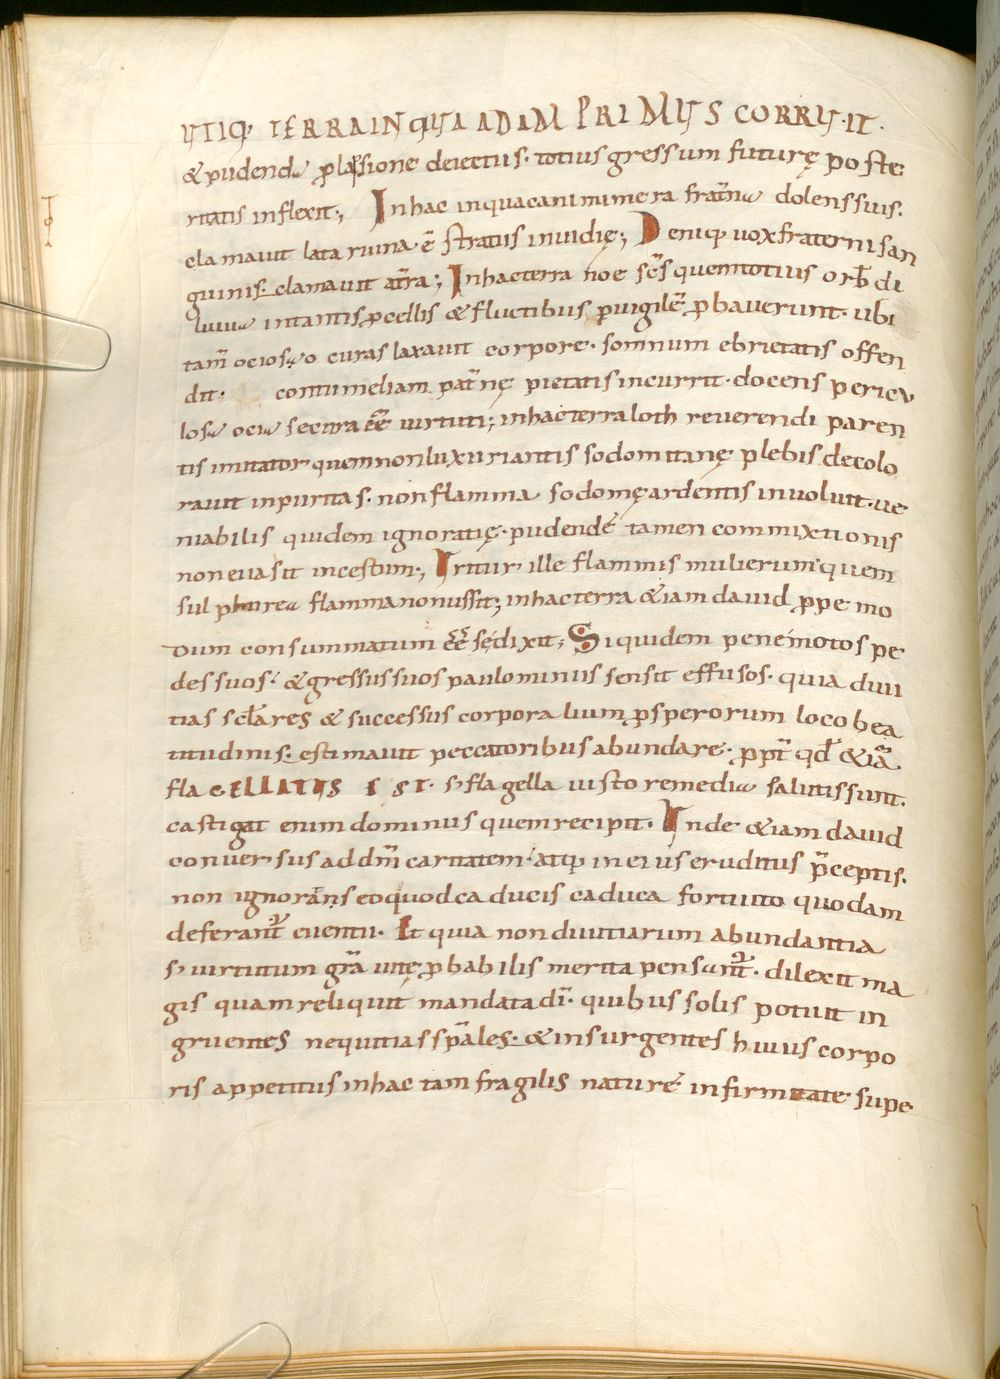 UTIQ; TERRA IN QUA ADAM PRIMUS CORRU·IT·
& pudendo plapsione deiectus· totius gressum futurę poste
ritatis inflexit; In hac inqua cani munera frat̅no dolens suis.
clamavit lata ruina· ē stratus invidię; Deniq; vox fraterni san
guinis· clamavit at̅ra; In hac terra noe sc̅s quem totius orb̅ di
luuio in tantis ꝓcellis & fluctibus puigilē ꝓbaverunt· ubi
tam̅ ocioso curas laxavit corpore· somnum ebrietatis offen
dit· contumeliam pat̅nę pietatis incurrit· docens pericu
loso ocio secura ee̅ virtuti; in hac terra loth reverendi paren
tis imitator quem non luxuriantis sodomitanę plebis decolo
ravit inpuritas· non flamma sodomę ardentis involuit· ve
niabilis quidem ignoratię· pudendę tamen commixtionis
non evasit incestum; Iritur ille flammis mulierum quem
sulphureo flamma non ussit; in hac terra &iam david ꝓpe mo
dum consummatum ee̅ sę dixit; Siquidem pene motos pe
des suos· & gressus suos paulominus sensit effusos· quia divi
tias sclares & successus corporalium ꝓsperorum loco bea
titudinis· estimavit peccatoribus abundare· ꝓpt̅ qd̅ &ia̅
flaGELLATUS EST· s; flagella iusto remedio salutis sunt·
castigat enim dominus quem recipit· Inde &iam david
conversus ad dm̅ caritatem· atq; in eius eruditus p̅ceptis·
non ignorans eo quod caducis caduca fortuito quodam
deferant̅ eventu· Et quia non divitiarum abundantia
s; virtutum gr̅a vitę ꝓbabilis merita pensant̅· dilexit ma
gis quam reliquit mandata di̅· quibus solis potuit in
gruentes nequitias sp̅ales· & insurgentes huius corpo
ris appetitus in hac tam fragilis naturę infirmitate supe